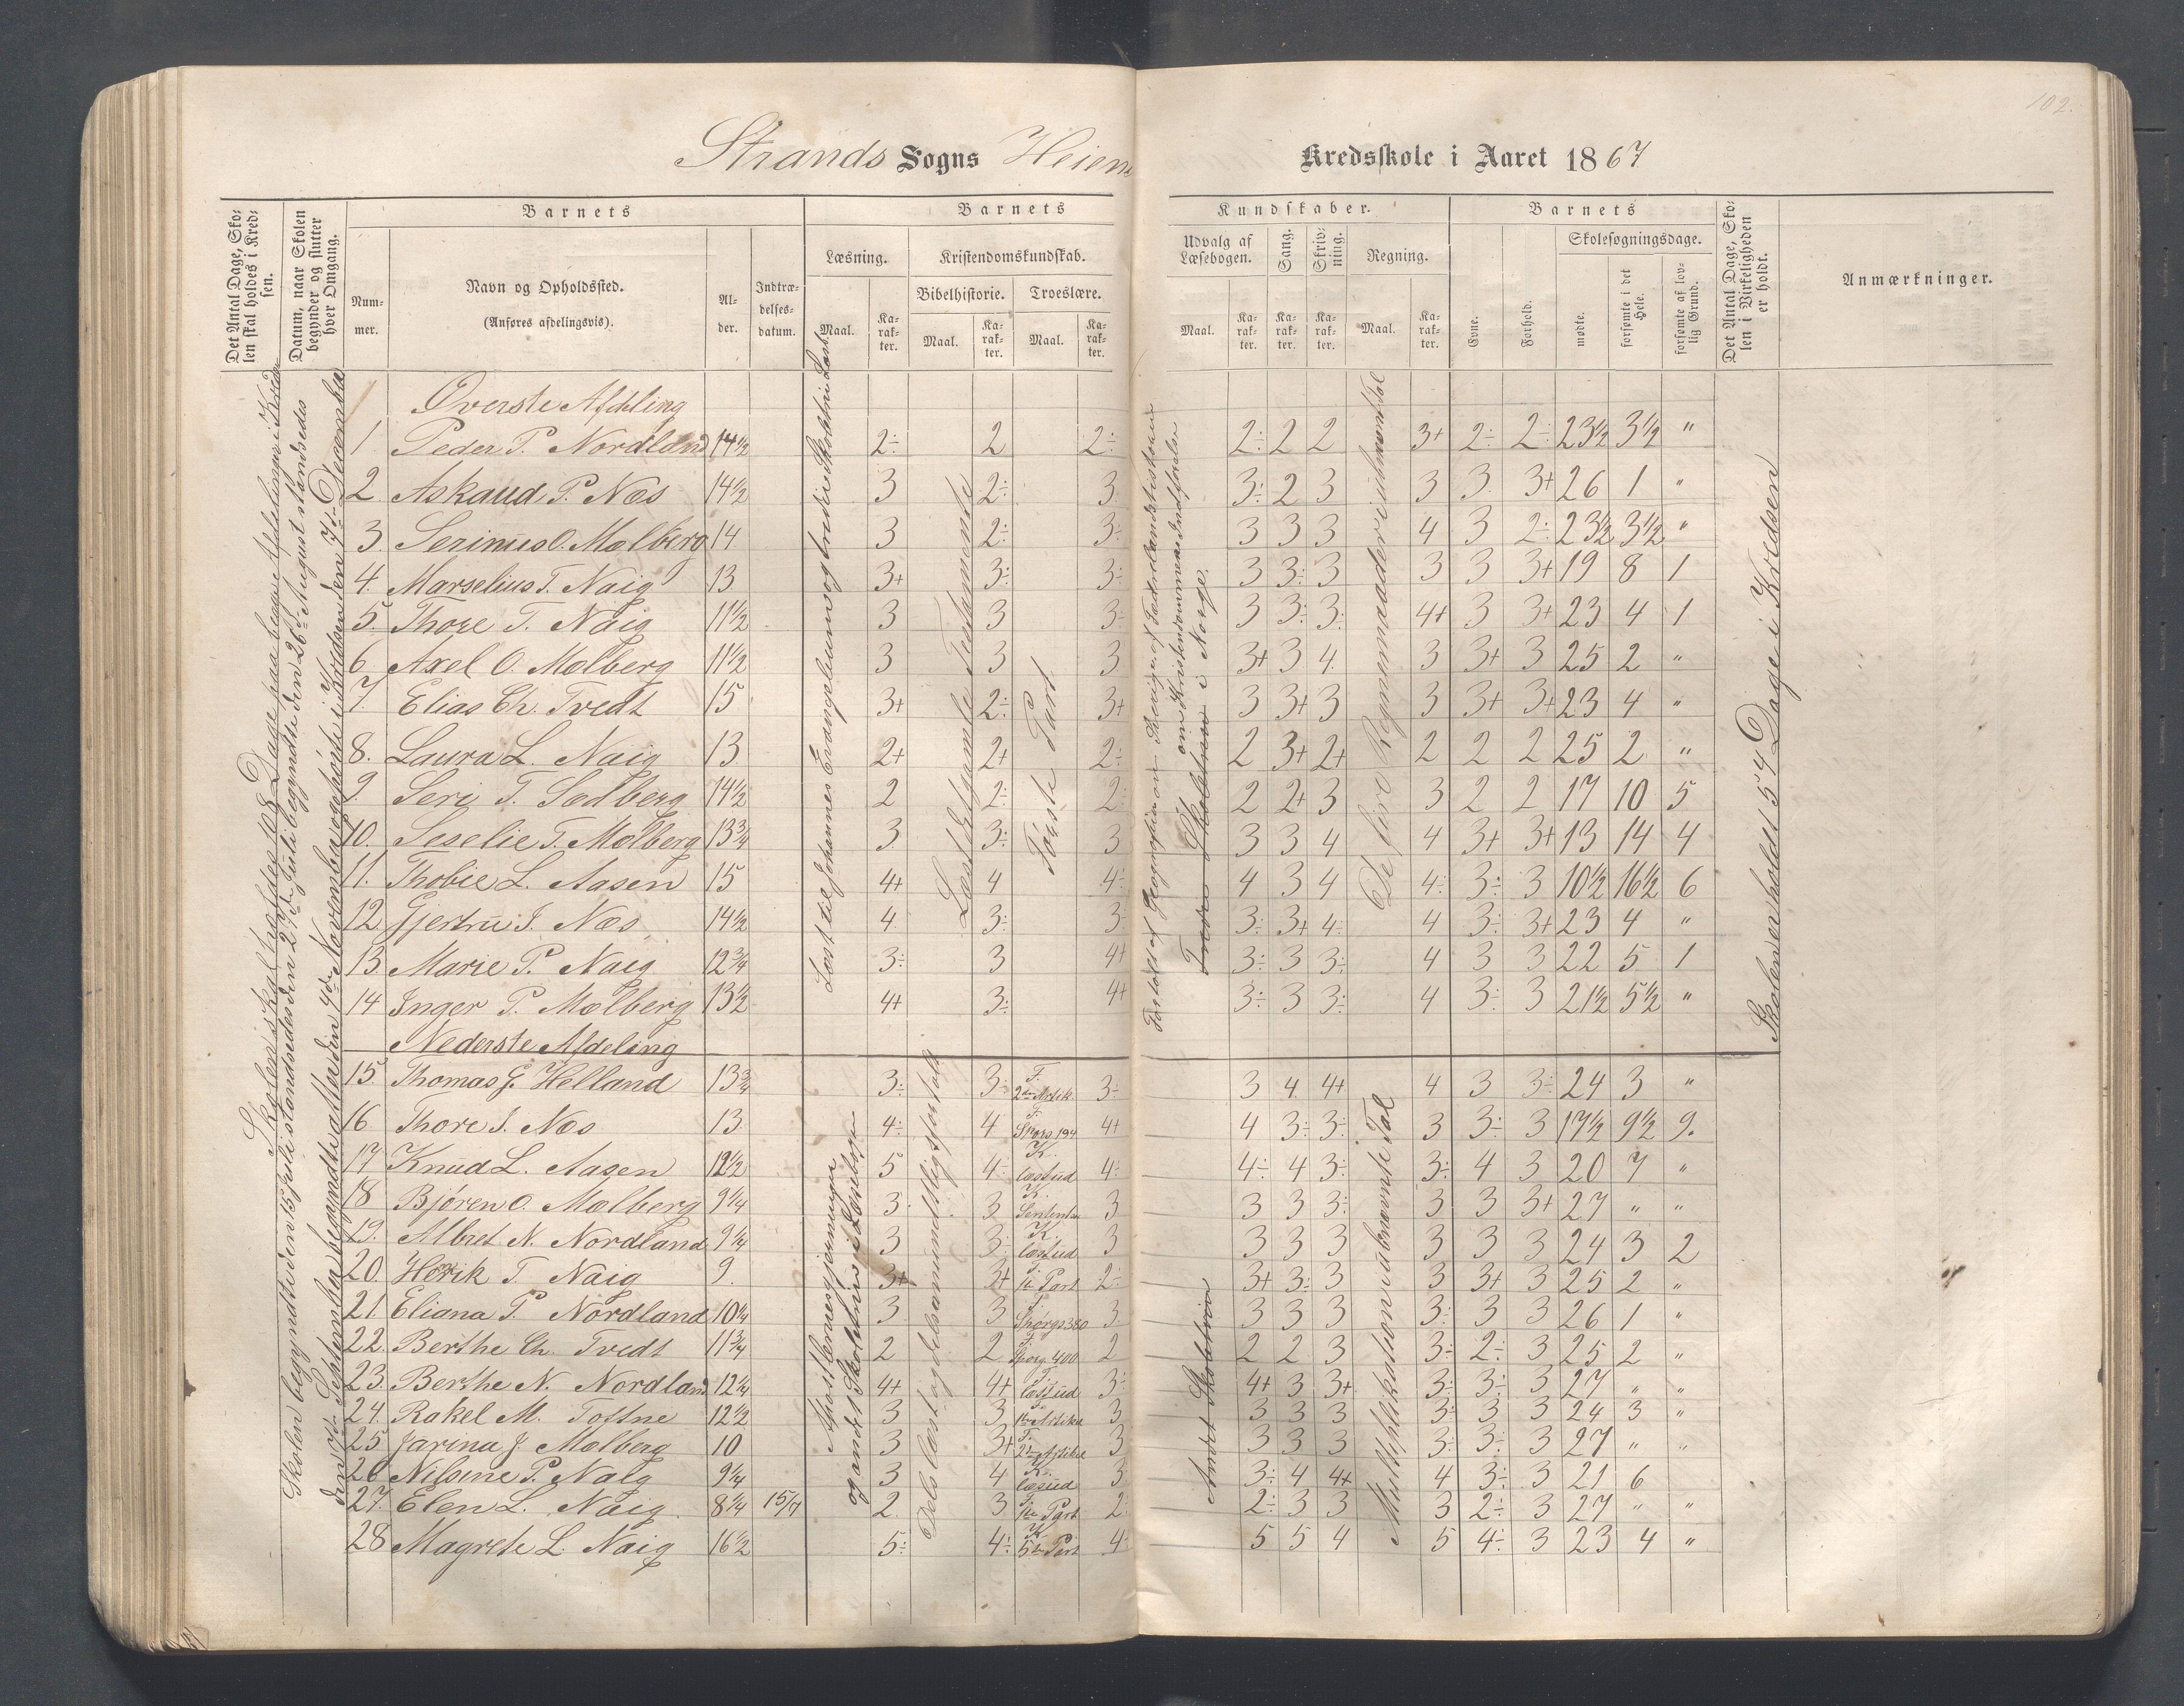 102.
Strands Sogns Heiens Kredsskole i Aaret 1867
Det Antal Dage, Sko-
len skal holdes i Kred-
sen.
Datum, naar Skolen
begynder og slutter
hver Omgang.
Barnets
Num-
mer.
Navn og Opholdssted.
(Anføres afdelingsvis).
Al-
der.
Indtræ-
delses-
datum.
Barnets
Læsning.
Maal.
Ka-
rak-
ter.
Kristendomskundskab.
Bibelhistorie.
Maal.
Ka-
rak-
ter.
Troeslære.
Maal.
Ka-
rak-
ter.
Kundskaber.
Udvalg af
Læsebogen.
Maal.
Ka-
rak-
ter.
Sang.
Ka-
rak-
ter.
Skriv-
ning.
Ka-
rak-
ter.
Regning.
Maal.
Ka-
rak-
ter.
Barnets
Evne.
Forhold.
Skolesøgningsdage.
mødte.
forsømte i det
Hele.
forsømte af lov-
lig Grund.
Det Antal Dage, Sko-
len i Virkeligheden
er holdt.
Anmærkninger.
Skolen skal holdes 108 Dage paa begge Afdelinger i Kredsen
Skolen begyndte den 15 Juli standsedes den 27de Juli begyndte den 26de August standsedes
den 7de September begyndte atter den 4de November og endte i Kredsen den 7de December
Læst til Johannes Evangelium og tredie Skoletrin i Læseb.
Læst det gamle Testamente
Første Part
Fortalt af Geografien Sverige, af Fædrelandshistorien
om Kristendommens Indførelse
i Norge.
De fire Regnemaader i ubenævnt Tal
Skolen er holdt 54 Dage i Kredsen
Øverste Afdeling
1 Peder P. Nordland 14½ 2÷ 2 2÷ 2÷ 2 2 3+ 2÷ 2÷ 23½ 3½ "
2 Askaud P. Næs 14½ 3 2÷ 3 3÷ 2 3 3 3 3+ 26 1 "
3. Serinus O. Mølberg 14 3 2÷ 3÷ 3 3 3 4 3 2÷ 23½ 3½ "
4. Marselius T. Naig 13 3+ 3÷ 3÷ 3 3÷ 3 3 3 3+ 19 8 1
5. Thore T. Naig 11½ 3 3 3÷ 3 3÷ 3÷ 4+ 3 3+ 23 4 1
6. Axel O. Mølberg 11½ 3 3 3 3+ 3 4. 3 3+ 3 25 2 "
7. Elias Ch. Tvedt 15 3+ 2÷ 3+ 3 3+ 3 3 3+ 3+ 23 4 "
8. Laura L. Naig 13 2+ 2+ 2÷ 2 3+ 2+ 2 2 2 25 2 "
9. Seri T. Sedberg 14½ 2 2÷ 2÷ 2 2+ 3 3 2 2 17 10 5
10. Seselie T. Mølberg 13¾ 3 3÷ 3 3 3 4 4 3+ 3+ 13 14 4
11. Thobie L. Aasen 15 4+ 4 4÷ 4 3 4 4÷ 3÷ 3 10½ 16½ 6
12 Gjertru I. Næs 14½ 4 3÷ 3 3÷ 3+ 4÷ 4 3÷ 3+ 23 4 "
13. Marie P. Naig 12¾ 3÷ 3 4+ 3÷ 3 3÷ 4 3 3 22 5 1
14 Inger P. Mølberg 13½ 4+ 3÷ 4+ 3÷ 3 3÷ 4 3÷ 3 21½ 5½ "
Nederste Afdeling
Dels læst og dels en mundtlig fortalt
Andet Skoletrin
Multiplikation i ubenævnte Tal
og andet Skoletrin i Læsebogen
15. Thomas G. Helland 13¾ 3÷ 3÷ F. 2den Artik. 3÷ 3 4 4+ 4 3 3÷ 24 3 "
16 Thore I. Næs 13 4÷ 4 F. Spørs. 194 4+ 4 3÷ 3÷ 3 3÷ 3 17½ 9½ 9.
17 Knud L. Aasen 12½ 5 4÷ K. læst ud 4÷ 4÷ 4 3÷ 3÷ 4 3 20 7 "
18 Bjøren O. Mølberg 9¼ 3 3 K. 3 3 3 3÷ 3 3 3+ 27 " "
19. Albret N. Nordland 9¼ 3 3÷ K. læst ud 3 3 3 3 3 3 3 24 3 2
20. Henrik T Naig 9. 3+ 3+ F. 1ste Part 2÷ 3+ 3÷ 3 3 3+ 3 25 2 "
21. Eliana P. Nordland 10¼ 3 3 F. Spørgs 380 3 3 3 3 3÷ 3 3 26 1 "
22. Berthe Ch. Tvedt 11¾ 2 2 F. Spørg 400 2 2 2 3 3÷ 2÷ 3 25 2 "
23. Berthe N. Nordland 12¼ 4+ 4+ F. læst ud 3÷ 4+ 3 3+ 3÷ 3÷ 3 27 " "
24. Rakel M. Toftne 12½ 3 3 F. 1ste Artikel 3 3 3 3 3÷ 3 3 24 3 "
25 Jarina J. Mølberg 10 3 3+ F. 2den Artikel 3 3 3 3 3÷ 3÷ 3 27 " "
26 Nilsine P. Naig 9¼ 3 4 K. læst ud 3 3÷ 4 4+ 4 3÷ 3 21 6
27. Elen L. Naig 8¼ 15/7 2. 3 F. 1ste Part 2÷ 2÷ 3 3 3 2÷ 3 27 " "
28 Magrete L. Naig 16½ 5÷ 4÷ K. 5te Part 4÷ 5 5 4 5 4÷ 3 23 4 "